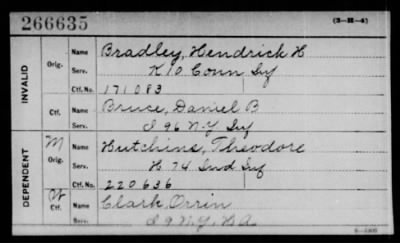 266635
(3-H-4)
INVALID
Orig.
Name Bradley, Hendrick H
Serv. K 10 Conn Inf
Ctf. No. 171083
Ctf.
Name Bruce, Daniel B
Serv. I 96 N.Y. Inf
DEPENDENT
M
Orig.
Name Hutchins, Theodore
Serv. H 74 Ind Inf
Ctf. No. 220636
W
Ctf.
Name Clark, Orrin
Serv. I 9 N.Y. H A